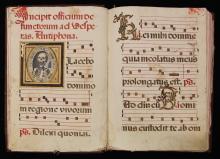 Incipit officium de
functorum ad Vespe
ras. Antiphona.
Placebo
domino
in regione vivorum
ps. Dilexi quoniam.
Hei mihi domine
quia incolatus meus
prolongatus est. ps.
Ad dominum
nus custodit te ab om